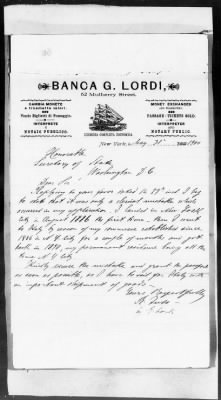 BANCA G. LORDI,
52 Mulberry Street.
CAMBIA MONETE
e trasmette valori.
Vende Biglietti di Passaggio.
INTERPRETE
E
NOTAIO PUBBLICO.
MONEY EXCHANGED
PASSAGE TICKETS SOLD.
INTERPRETER
AND
NOTARY PUBLIC.
New York, May 31st 1900
Honorable
Secretary of State
Washington D.C.
Dear Sir:
Replying to your favor dated the 29th inst I beg
to state that it was only a clerical mistake which
occurred in my application. I landed in New York
city in August 1886 the first time. Then I went
to Italy by reason of my commerce established since
1886 in N. Y. City for a couple of months and got
back in 1890, my permanent residence being all the
time in N. Y. city
Kindly excuse the mistake, and grant the passport
as soon as possible, as I have to sail for Italy with
an important shipment of goods.
Yours Respectfully